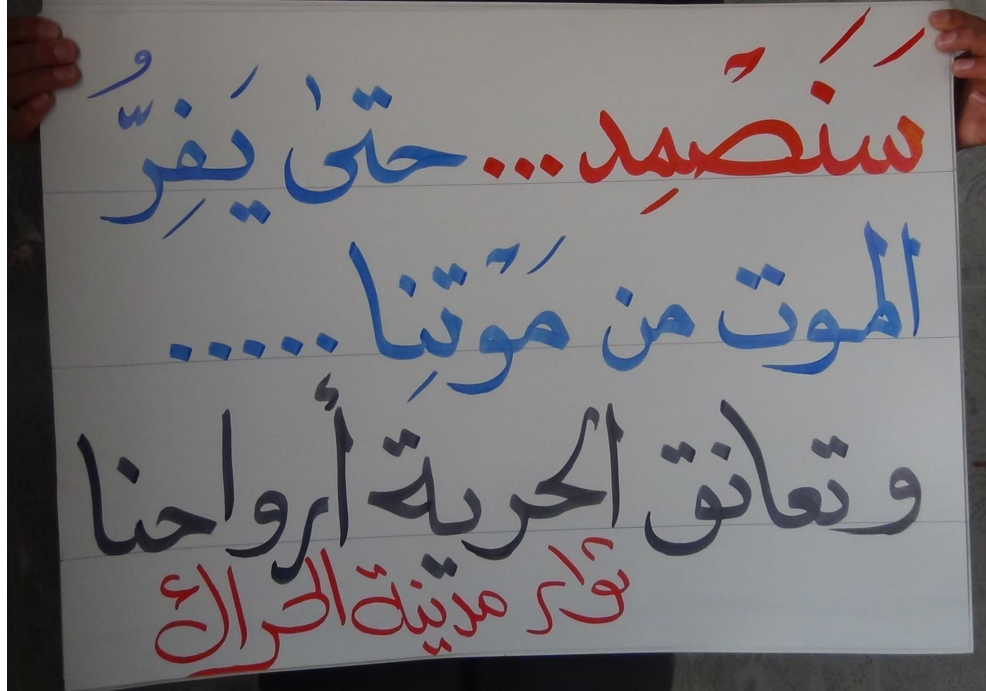 سَنَصْمِد... حتىٰ يَفِرُّ
الموت من مَوْتِنا .....
و تعانق الحرية أرواحنا
ثوار مدينة الحراك